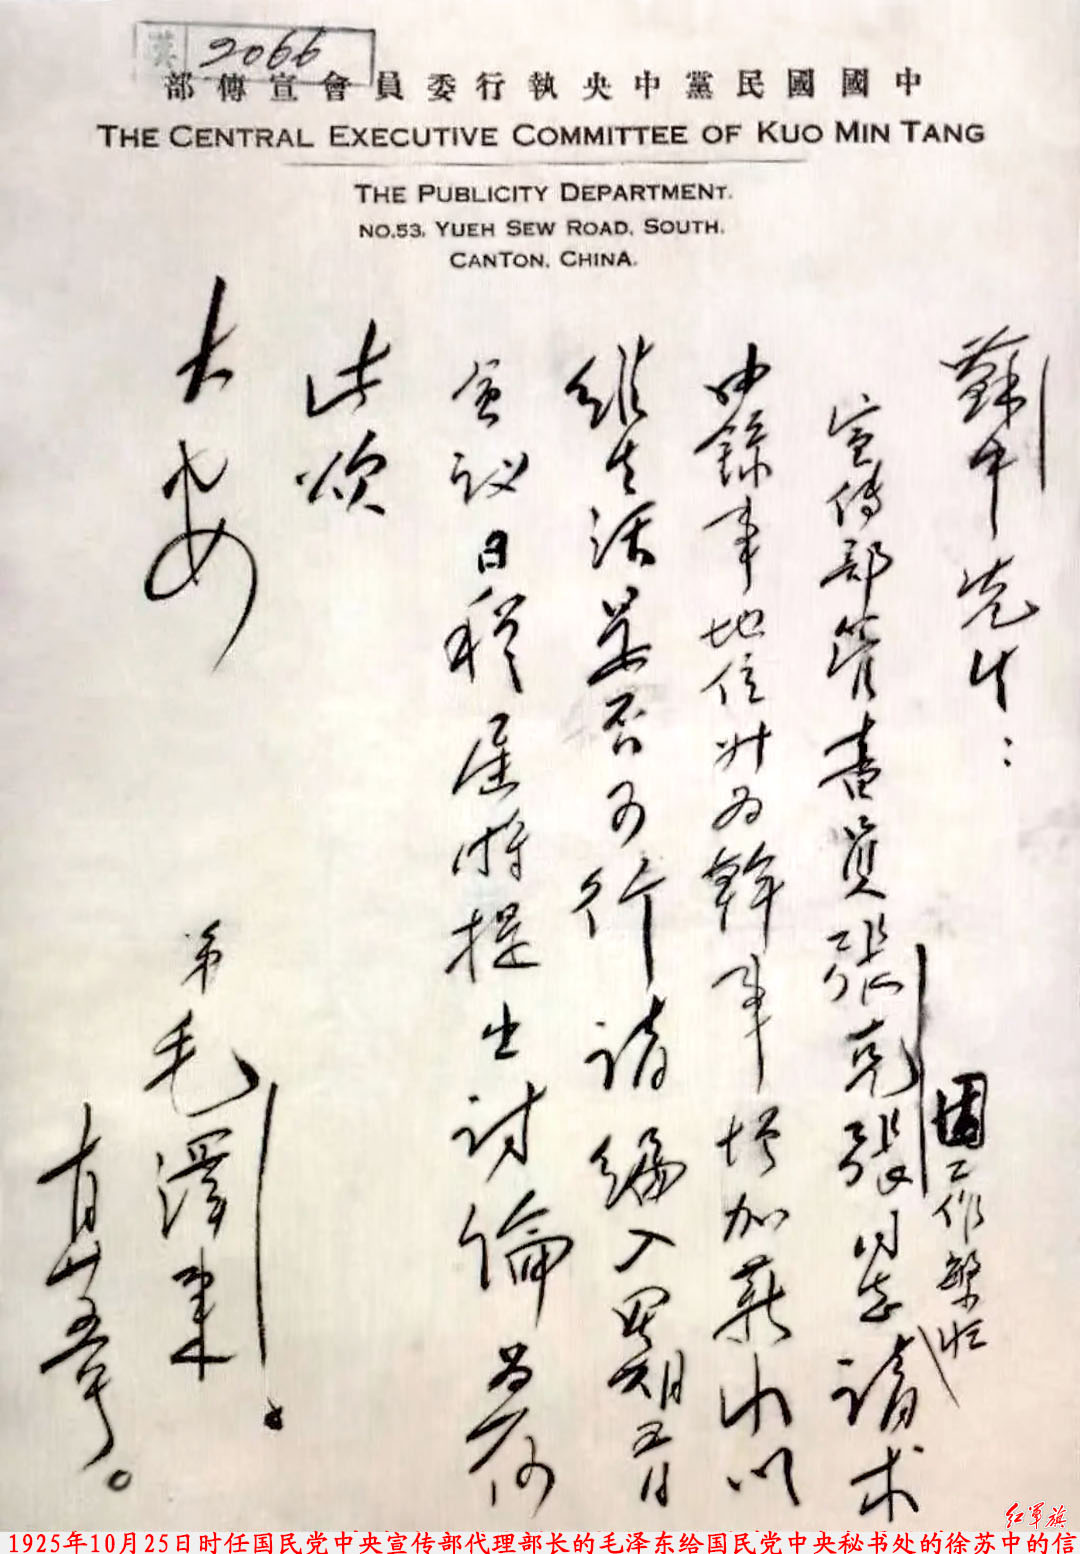 2066
中國國民黨中央執行委員會宣傳部
THE CENTRAL EXECUTIVE COMMITTEE OF KUO MIN TANG
THE PUBLICITY DEPARTMENT.
NO.53, YUEH SEW ROAD, SOUTH.
CANTON, CHINA.
蘇中先生：
因工作繁忙
宣传部管書員張克張同志请求
由録事地位升为幹事增加薪水以
維生活是否可行请编入星期五日
会议日程届时提出讨論为荷
此颂
大安
弟毛澤東。
十月廿五号。
红军旗
1925年10月25日时任国民党中央宣传部代理部长的毛泽东给国民党中央秘书处的徐苏中的信